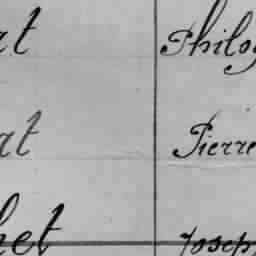 at Philog
at Pierre
het Joseph